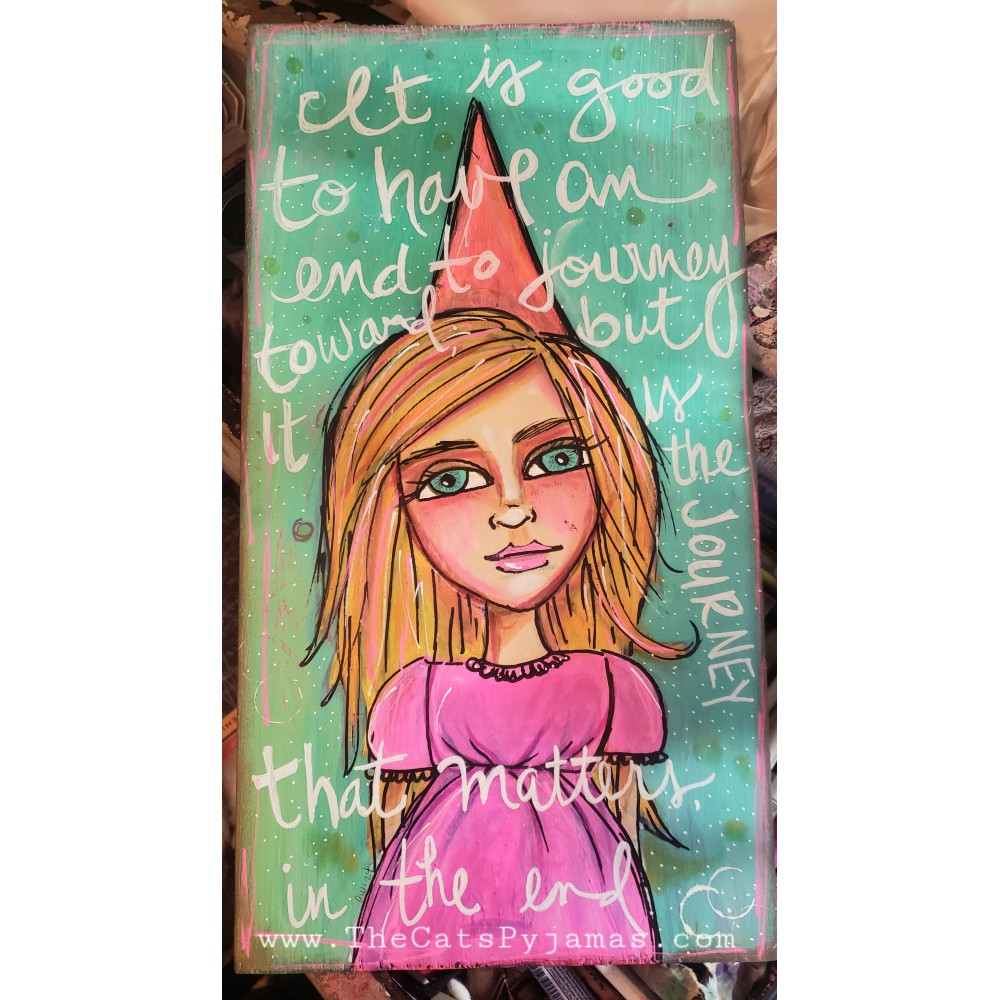 It is good
to have an
end to journey
toward; but
it is
the
JOURNEY
that matters,
in the end
www.TheCatsPyjamas.com